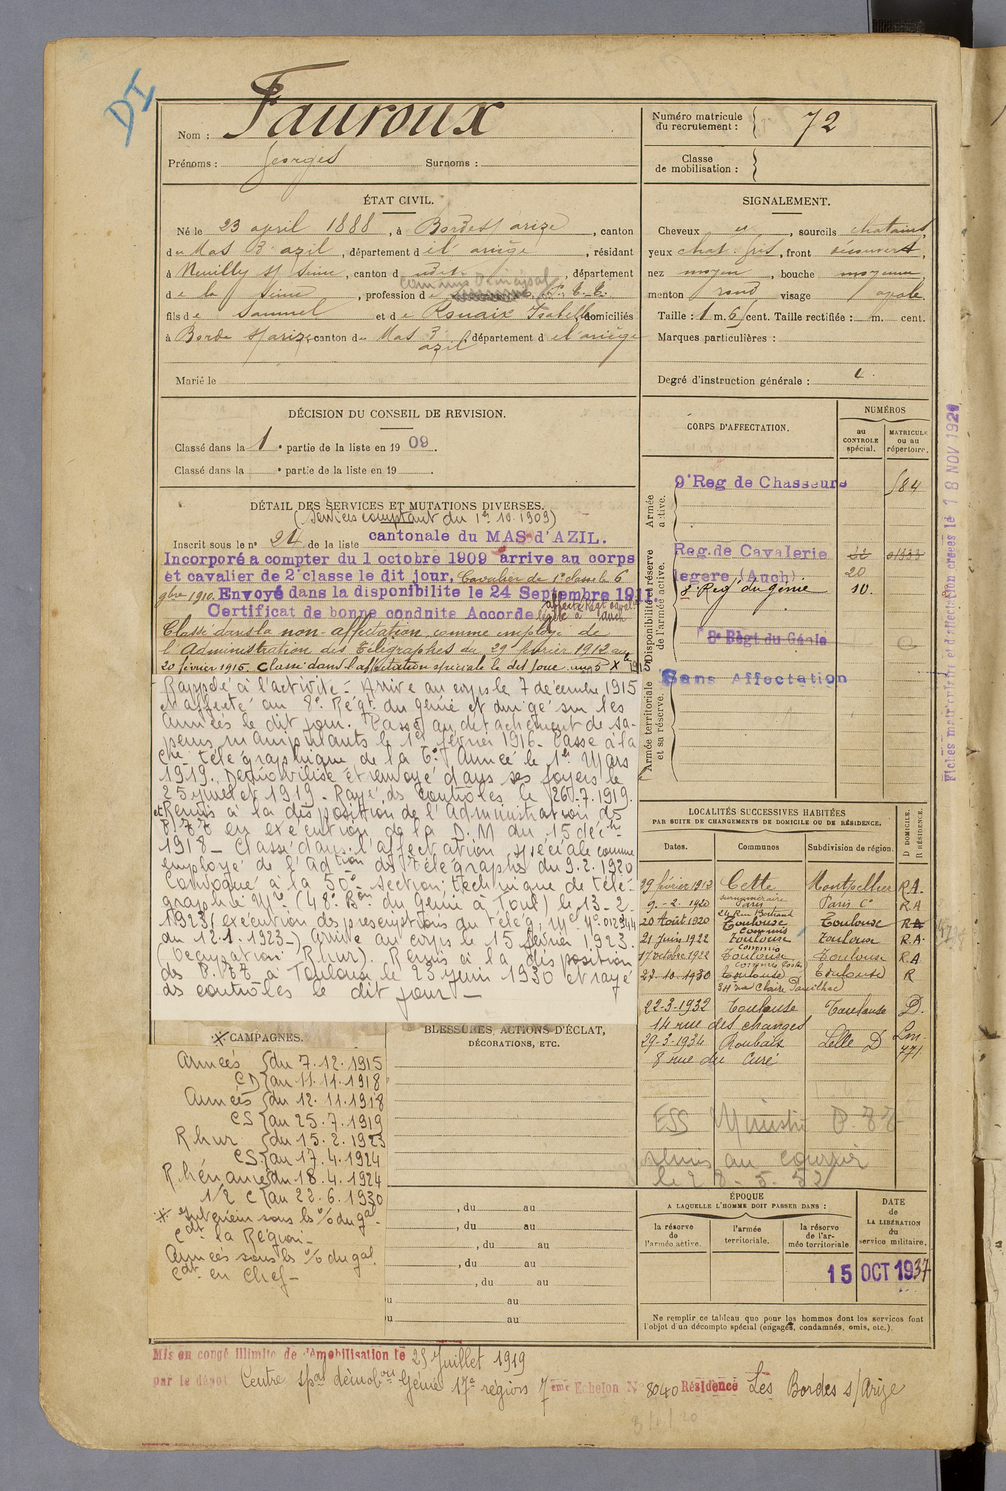 DI
Nom : Fauroux
Prénoms : Georges Surnoms :
Numéro matricule du recrutement : 72
Classe de mobilisation :
ÉTAT CIVIL.
Né le 23 april 1888, à Bordes s/ arize, canton
du Mas d'azil, département de l'ariège, résidant
à Neuilly s/ Seine, canton du dit, département
commis principal
de la Seine, profession de
fils de Samuel et de Rouaix Isabelle domiciliés
à Borde s/arize canton du Mas d'azil, département de l'ariège
Marié le
SIGNALEMENT.
Cheveux , sourcils chatains,
yeux chat gris, front découvert,
nez moyen, bouche moyenne
menton rond, visage ovale
Taille : 1 m. 6 cent. Taille rectifiée : m. cent.
Marques particulières :
Degré d'instruction générale : 4
DÉCISION DU CONSEIL DE REVISION.
Classé dans la 1e partie de la liste en 1909.
Classé dans la e partie de la liste en 19 .
DÉTAIL DES SERVICES ET MUTATIONS DIVERSES.
(Services comptant du 1er 10.1909)
Inscrit sous le n° 24 de la liste cantonale du MAS d'AZIL.
Incorporé a compter du 1 octobre 1909 arrive au corps
et cavalier de 2e classe le dit jour, Cavalier de 1e classe le 6
9bre 1910. Envoyé dans la disponibilite le 24 Septembre 1911.
Certificat de bonne conduite Accorde
Classé dans la non-affectation comme employé de
l'Administration des télégraphes du 29 février 1912 au
20 février 1915. Classé dans l'affectation spéciale le dit jour.
Rappelé à l'activité - Arrivé au corps le 7 décembre 1915
et affecté au 8e Régt du génie et dirigé sur les
Armées le dit jour. Passé au détachement de sa-
peurs manipulants le 1er février 1916. Passé à la
Cie télégraphique de la 6e Armée le 1er Mars
1919. Démobilisé et renvoyé dans ses foyers le
25 juillet 1919. Rayé des contrôles le 26.7.1919.
et Remis à la disposition de l'Administration des
P.T.T. en exécution de la D.M du 15 déc
1918 - Classé dans l'affectation spéciale comme
employé de l'Adtion des télégraphes du 9.2.1920
Convoqué à la 50e section technique de télé-
graphie Mre (48e Ron du génie à Toul) le 13-2-
1923 (exécution des prescriptions du télég. Mel
du 12.1.1923-) Arrivé au corps le 15 février 1923.
(Occupation Rhur). Remis à la disposition
des P.T.T. à Toulouse le 23 juin 1930 et rayé
des contrôles le dit jour -
CORPS D'AFFECTATION.
NUMÉROS
au CONTROLE spécial.
MATRICULE ou au répertoire.
Armée active.
9e Reg de Chasseurs 184
Disponibilité et réserve de l'armée active.
Reg. de Cavalerie
legere (Auch) 20
8e Reg du génie 10.
8e Règt du Génie
Armée territoriale et sa réserve.
Sans Affectation
Fiches matricule tri et d'affectation créées le 18 NOV 192
LOCALITÉS SUCCESSIVES HABITÉES
PAR SUITE DE CHANGEMENTS DE DOMICILE OU DE RÉSIDENCE.
Dates. Communes Subdivision de région. D DOMICILE. R RÉSIDENCE.
29 février 1912 Cette Montpellier R.A.
surnuméraire
9-2-1920 Paris Paris C R.A
24 Rue Bertrand
20 Août 1920 Toulouse Toulouse R A
commis
21 Juin 1922 Toulouse Toulouse R.A.
commis
17 octobre 1922 Toulouse Toulouse R.A
22-10-1930 Toulouse Toulouse R
22-3-1932 Toulouse Toulouse D.
14 rue des changes
29-3-1934 Roubaix Lille D
8 rue du Curé
ESS Ministre P.T.T.
le 28.5.52
CAMPAGNES.
Armées { du 7.12.1915
CD { au 11.11.1918
Armées { du 12.11.1918
CS { au 25.7.1919
Rhur { du 15.2.1923
CS { au 17.4.1924
Rhénanie { du 18.4.1924
1/2 C { au 22.6.1930
Intérieur sous les o/ du gal
Cdt la Région -
Armées sous les o/ du gal
Cdt en Chef -
BLESSURES, ACTIONS D'ÉCLAT,
DÉCORATIONS, ETC.
, du au
, du au
, du au
, du au
, du au
du au
du au
ÉPOQUE
A LAQUELLE L'HOMME DOIT PASSER DANS :
la réserve de l'armée active.
l'armée territoriale.
la réserve de l'armée territoriale.
DATE DE LA LIBÉRATION du service militaire.
15 OCT 1937
Ne remplir ce tableau que pour les hommes dont les services font
l'objet d'un décompte spécial (engagés, condamnés, omis, etc.).
Mis en congé illimité de démobilisation le 25 Juillet 1919
par le dépôt Centre spal démobon Génie 17e région 7ème Echelon N° 8040 Résidence Les Bordes s/Arize